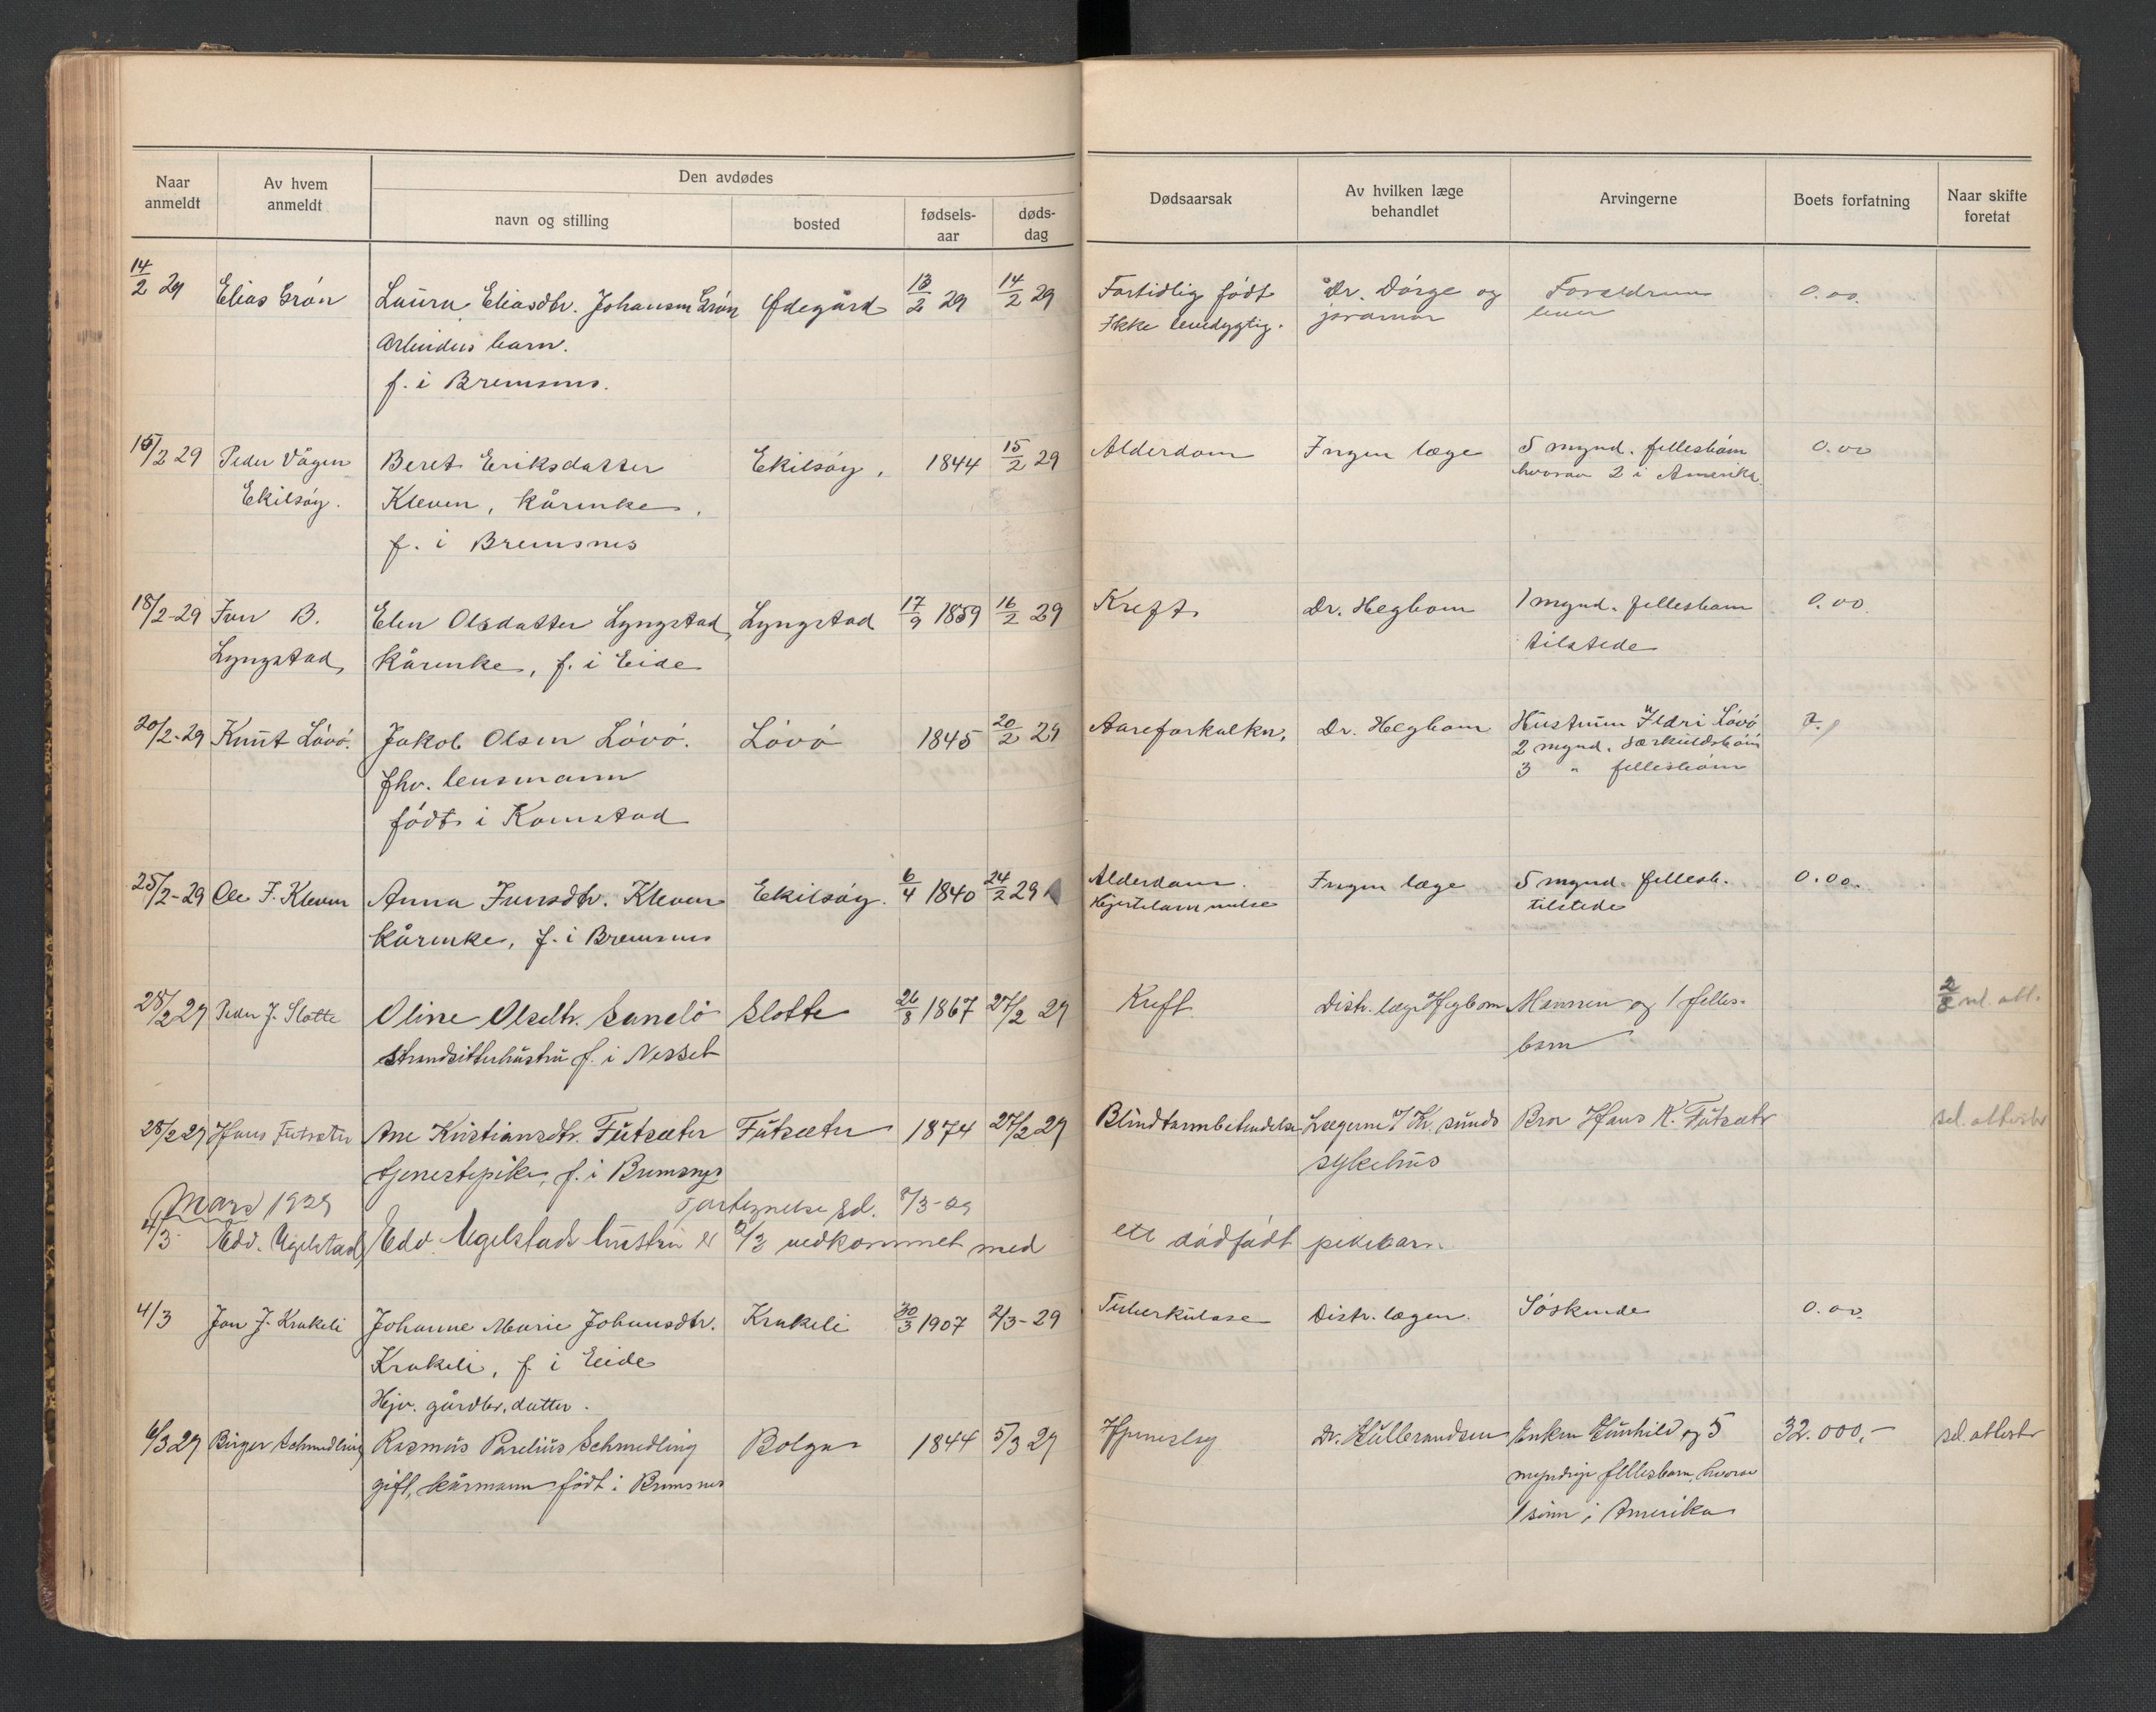 Naar anmeldt
Av hvem anmeldt
Den avdødes
navn og stilling
bosted
fødsels-aar
døds-dag
Dødsaarsak
Av hvilken læge behandlet
Arvingerne
Boets forfatning
Naar skifte foretat
14/2 29 Elias Grön Laura Eliasdtr. Johansen Grön Ødegård 13/2 29 14/2 29 Fortidlig født Dr. Dörge og Foreldrene 0.00.
barn. Ikke levedygtig. joramor
f. i Bremsnes.
15/2 29 Peder Vågen Beret Eriksdatter Ekilsöy. 1844 15/2 29 Alderdom Ingen læge 5 mynd. fellesbarn 0.00
Ekilsöy. Kleven, kårenke, hvorav 2 i Amerika.
f. i Bremsnes
18/2-29 Iver B. Elen Olsdatter Lyngstad, Lyngstad 17/9 1859 16/2 29 Kreft Dr. Hegbom 1 mynd. fellesbarn 0.00.
Lyngstad kårenke, f. i Eide tilstede
20/2-29 Knut Lövö. Jakob Olsen Lövö. Lövö 1845 20/2 29 Aareforkalkn. Dr. Hegbom Hustruen Ildri Lövö
fhv. lensmann 2 mynd. særkuldsbarn
født i Kornstad 3 " fellesbarn
25/2-29 Ole I. Kleven Anna Iversdtr. Kleven Ekilsöy. 6/4 1840 24/2 29 Alderdom. Ingen læge 5 mynd. fellesb. 0.00.
kårenke, f. i Bremsnes Hjertelammelse tilstede
28/2 29 Peder J. Slotte Oline Olsdtr. Sandö Slotte 26/8 1867 27/2 29 Kreft Distr. læge Hegbom Mannen og 1 felles-
strandsitterhustru f. i Nesset barn
28/2 29 Hans Futsæter Ane Kristiansdtr. Futsæter Futsæter 1874 27/2 29 Blindtarmbetendelse Lægerne v/ Kr. sunds Bror Hans K. Futsætr sd. attester
tjenestepike, f. i Bremsnes sykehus
Mars 1929 Fortegnelse sd. 8/3-29
4/3 Edv. Ugelstad Edv. Ugelstads hustru er 2/3 nedkommet med ett dödfödt pikebarn
4/3 Jon J. Krakeli Johanne Marie Johansdtr. Krakeli 30/3 1907 2/3-29 Tuberkulose Distr. lægen. Söskende 0.00.
Krakeli, f. i Eide
Hjv. gårdbr. datter.
6/3 29 Birger Schmedling Rasmus Parelius Schmedling Bolga 1844 5/3 29 Hjerneslag Dr. Gulbrandsen Enken Gunhild og 5 32.000,- sd. attester
gift, kårmann født i Bremsnes myndige fellesbarn, hvorav
1 sönn i Amerika